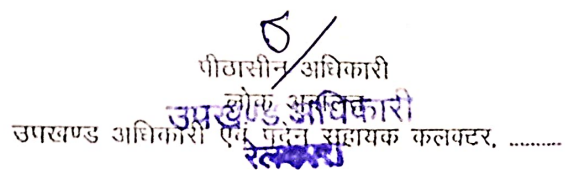 पीठासीन अधिकारी
लोक अदालत
उपखण्ड अधिकारी
उपखण्ड अधिकारी एवं पदेन सहायक कलक्टर, ..........